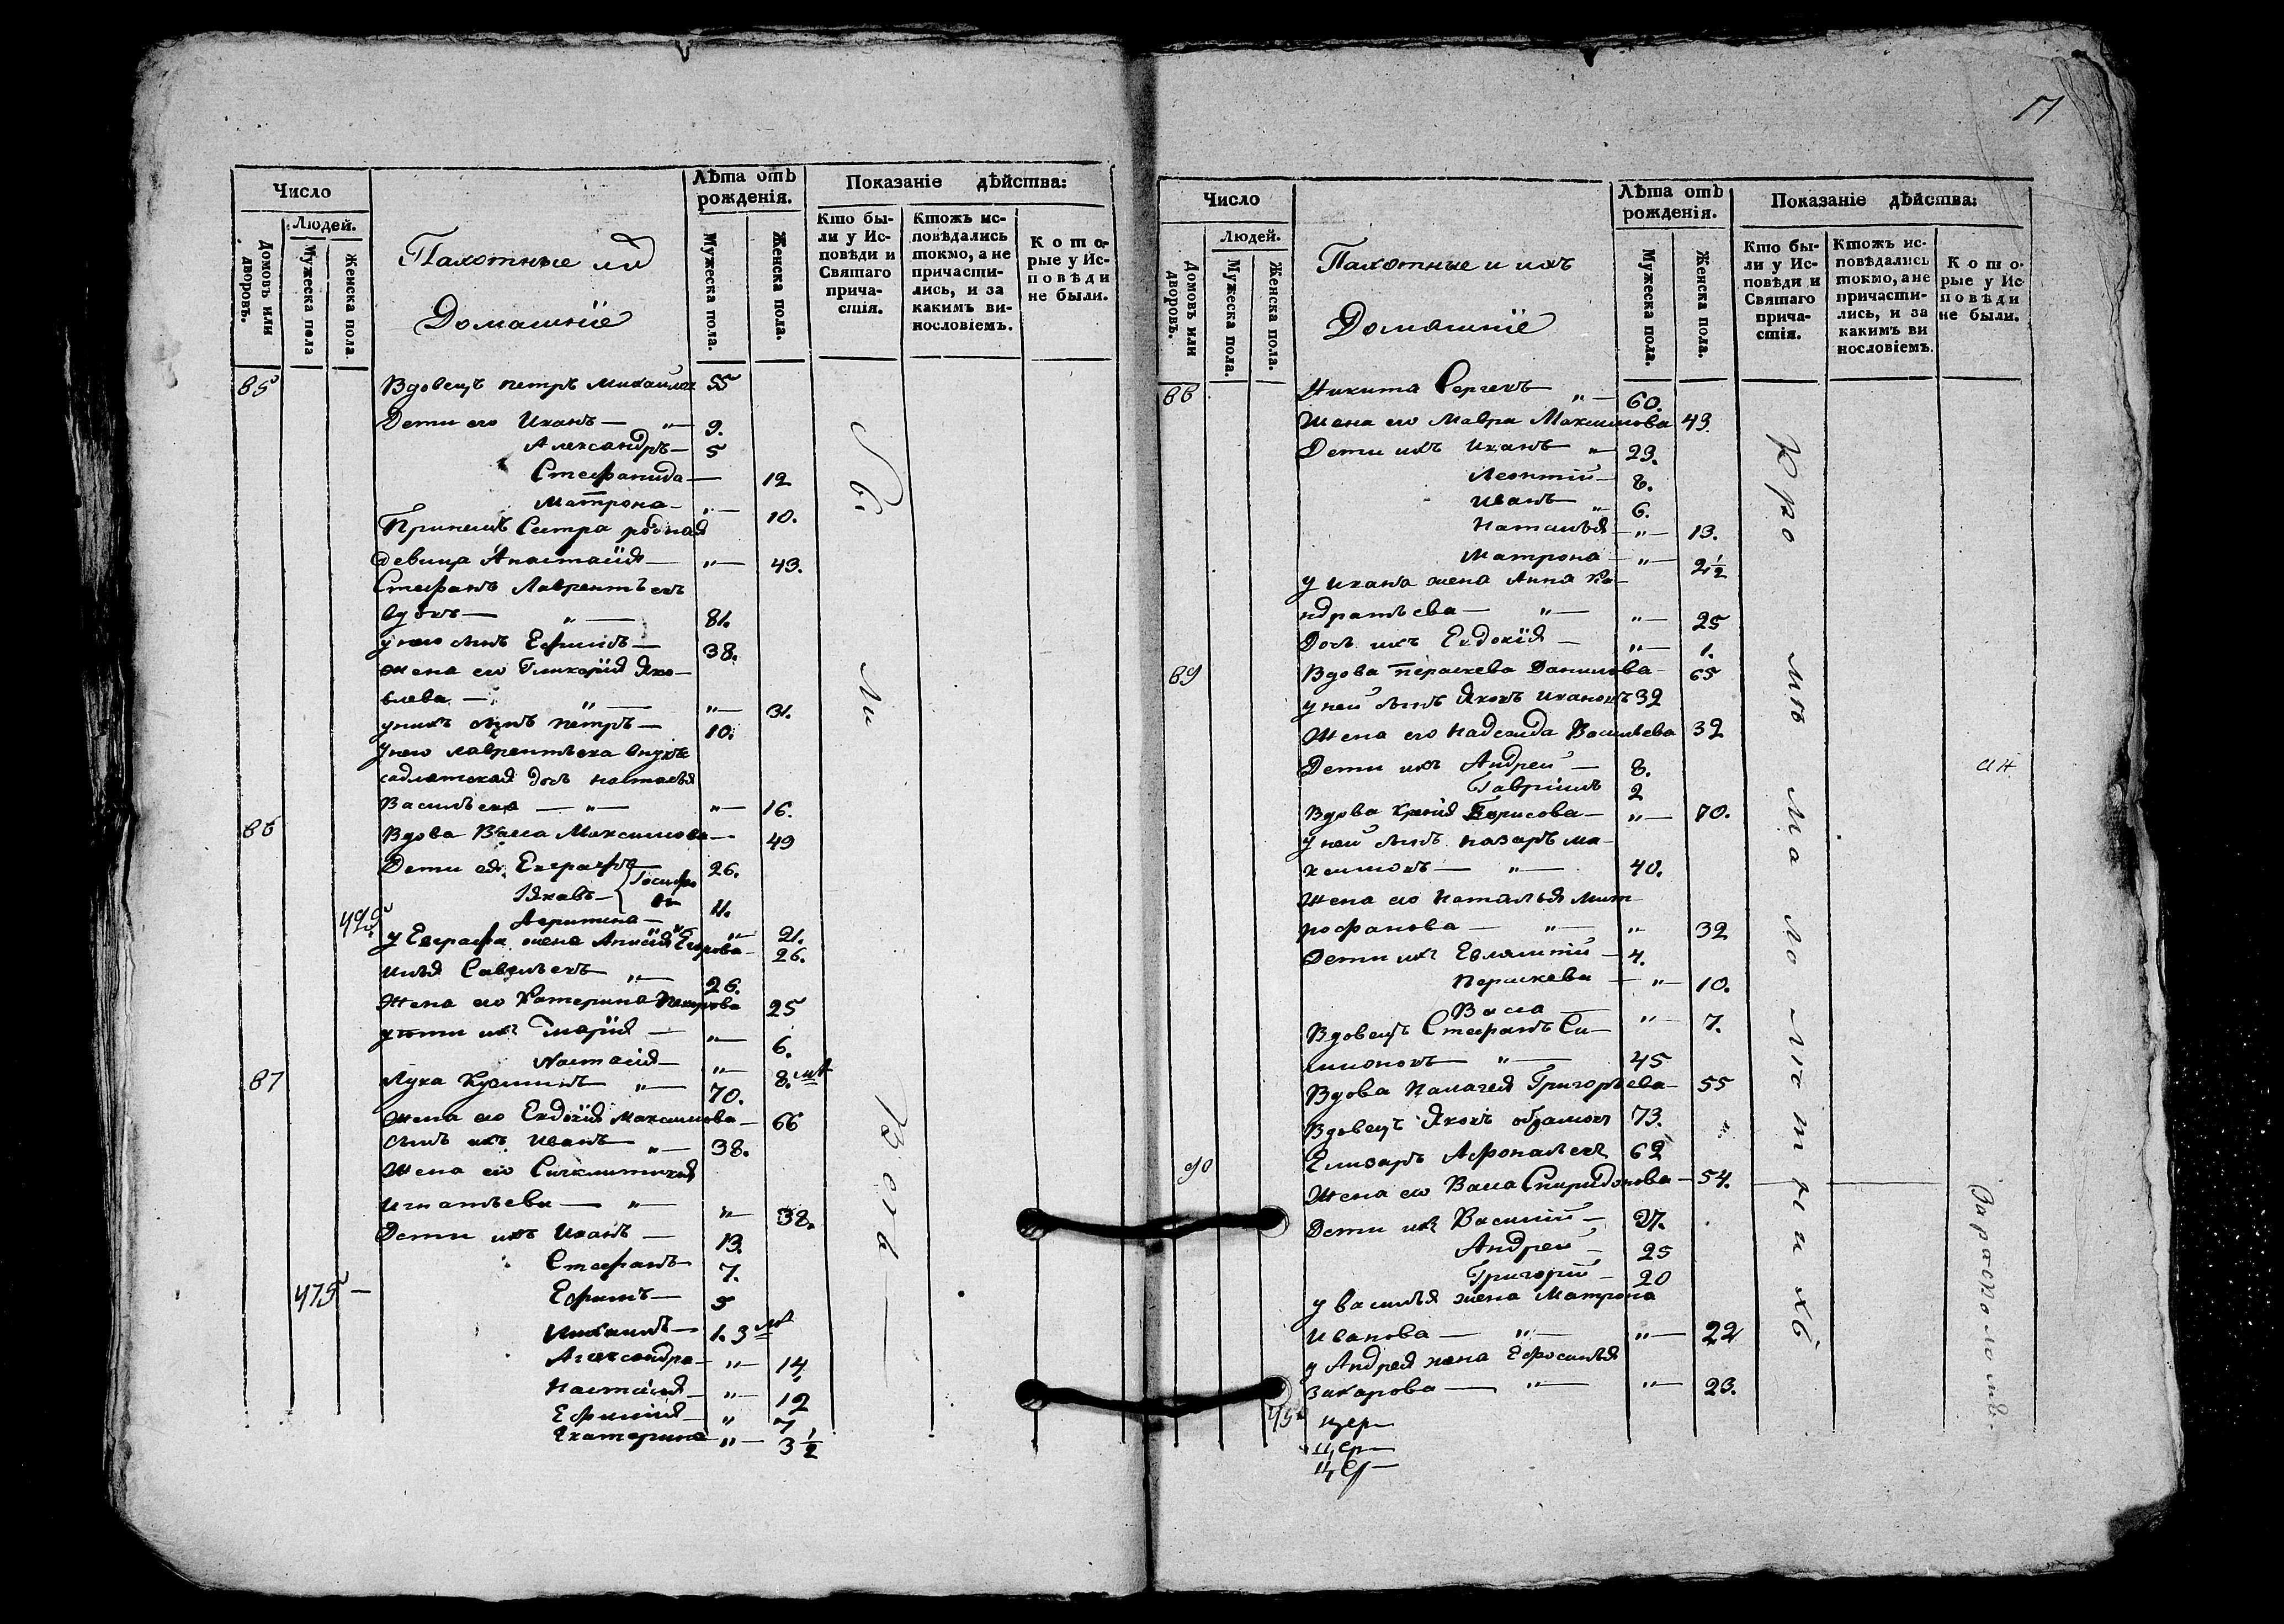 Число
Людей.
Домовъ или дворовъ.
Мужеска пола
Женска пола.
Пахотные
Домашніе
Лѣта отъ рожденія.
Мужеска пола.
Женска пола.
Показаніе дѣйства:
Кто бы-
ли у Ис-
повѣди и
Святаго
прича-
стія.
Ктожъ ис-
повѣдались
токмо, а не
причасти-
лись, и за
какимъ ви-
нословіемъ.
Кото-
рые у Ис-
повѣди
не были.
85 Вдовецъ петръ Михайловъ 55
Дети его Иванъ — „ — 9.
Александръ — 5
Стефанида — 12
Матрона — „ — 10.
Сестра родная
девица Анастасїя — „ — 43.
Стефанъ Лаврентьевъ
вдовъ — „ — 81.
у него сынъ Ефимъ — 38.
Жена его Гликерїя Яко-
влева — „ — „ — 31.
у нихъ сынъ петръ — 10.
у него лаврентьева внука
салдатская дочь настасья
Васильева — „ — „ — 16.
86 Вдова Васса Максимова — 49
Дети ея Евграфъ 26.
Яковъ — 11.
495
„ 21.
у Евграфа жена Егорова — 26.
Илья Савельевъ „ — 26.
Жена его Катерина Петрова 25
дети ихъ Марїя — „ — 6.
Настасїя — „ — 8. мѣ
87 Лука Кузминъ „ — 70.
Жена его Евдокїя Максимова — 66
сынъ ихъ Иванъ — „ — 38.
Жена его
Игнатьева — „ — „ — 38.
Дети ихъ Иванъ — 13.
Стефанъ — 7.
475 — Ефимъ — 5
Михаилъ — 1. 3 мѣ
Александра — „ — 14.
Настасїя — „ — 12
Ефимїя — „ 7
Екатерина — „ — 3 1/2
Всѣ
17
Число
Людей.
Домовъ или дворовъ.
Мужеска пола.
Женска пола.
Пахотные и ихъ
Домашніе
Лѣта отъ рожденія.
Мужеска пола.
Женска пола.
Показаніе дѣйства:
Кто бы-
ли у Ис-
повѣди и
Святаго
прича-
стія.
Ктожъ ис-
повѣдались
токмо, а не
причасти-
лись, и за
какимъ ви
нословіемъ.
Кото-
рые у Ис-
повѣди
не были.
88 Никита Сергеевъ „ — 60.
Жена его Мавра Максимова 49.
Дети ихъ Иванъ „ — 29.
Леонтїй — 8.
Иванъ „ 6.
Наталья — „ — 13.
Матрона — „ — 2 1/2
у Ивана жена Анна Ко-
ндратьева — „ — „ — 25
Дочь ихъ Евдокїя — „ — 1.
89 Вдова параскева Данилова — 65
у ней сынъ Яковъ Ивановъ 32
Жена его Надежда Васильева 32
Дети ихъ Андрей — 8.
Гаврїилъ 2
Вдова Борисова — „ — 70.
у ней сынъ назаръ ма-
ксимовъ — „ — 40.
Жена его Наталья Мит-
рофанова — „ — „ 32
Дети ихъ Евлампїй — 4.
Параскева — „ — 10.
Васса — „ — 7.
Вдовецъ Стефанъ Си-
мионовъ „ — 45
Вдова Палагея Григорьева — 55
Вдовецъ Яковъ абрамовъ 73.
90 Елизаръ Афонасьевъ 62
Жена его Васса Спиридонова — 54.
Дети ихъ Василїй — 27.
Андрей — 25
Григорїй — 20
у василья жена Матрона
Иванова — „ — „ — 22
у Андрея жена Ефросинья
Захарова — „ — „ — 23.
цер —
цер —
цер —
Кромѣ малолѣтнихъ
За расколомъ.